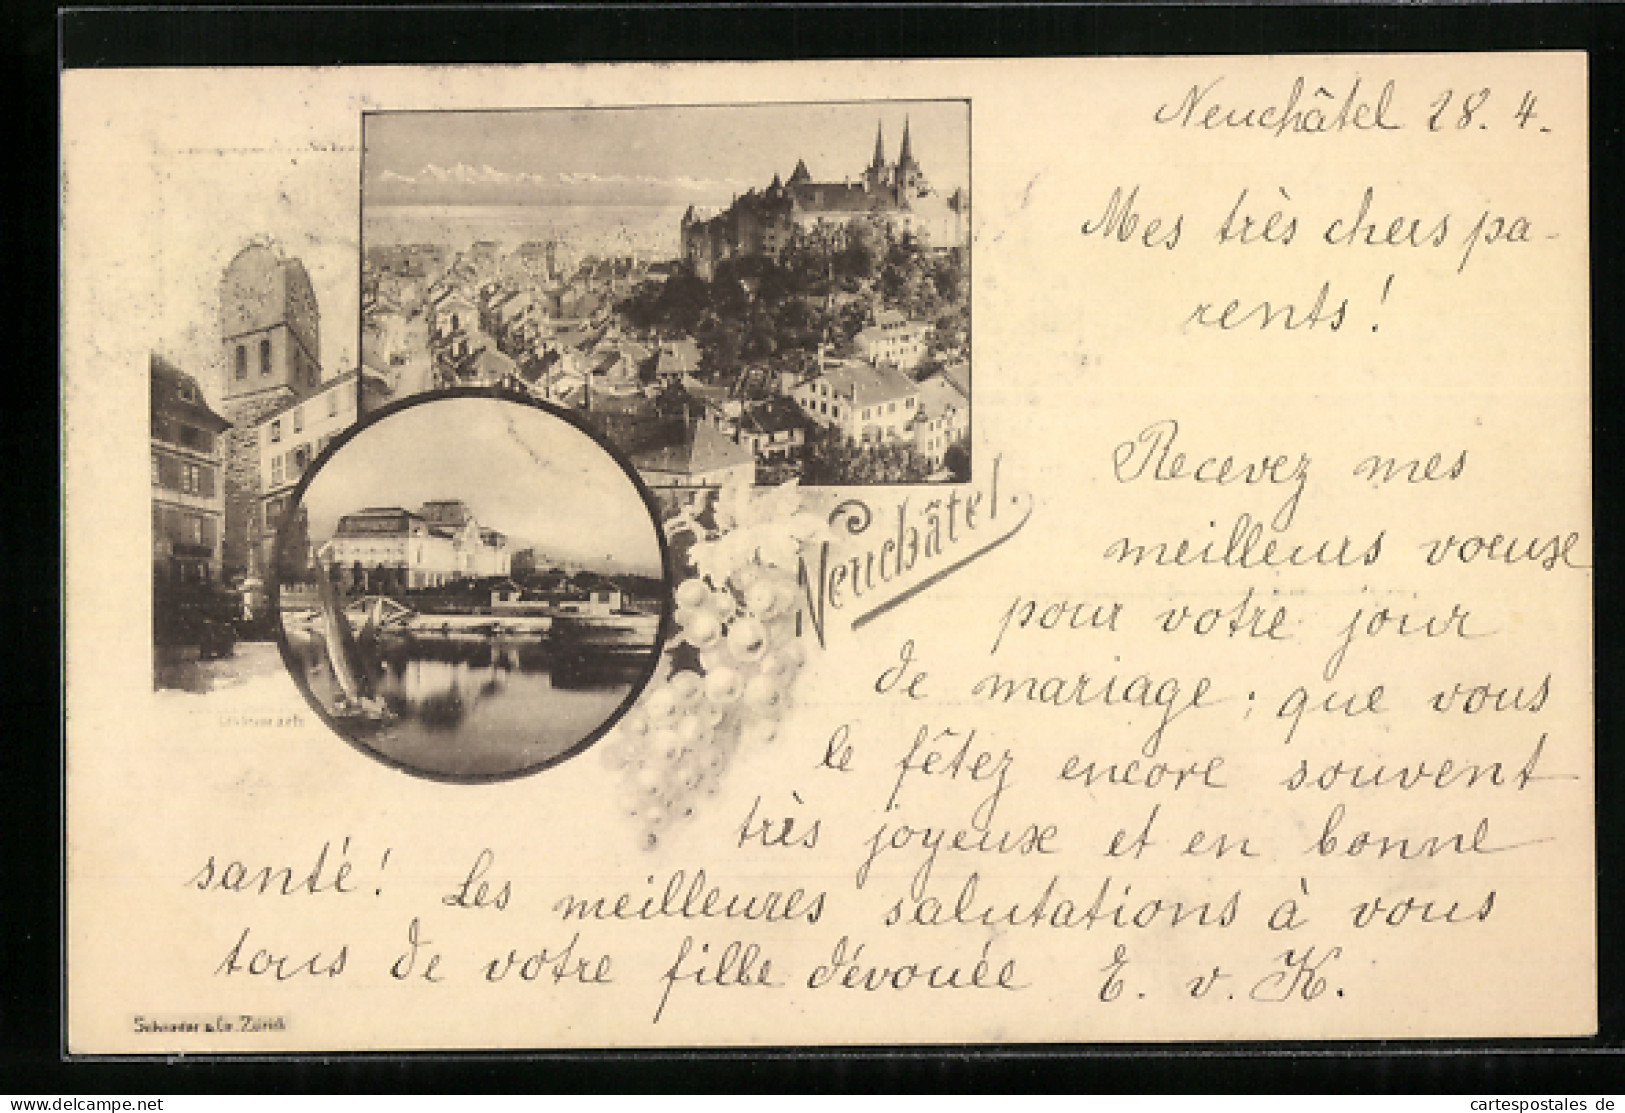 Neuchâtel 28. 4.
Mes très chers pa-
rents!
Recevez mes
meilleurs voeuxe
pour votre jour
de mariage; que vous
le fêtez encore souvent
très joyeuxe et en bonne
santé! Les meilleures salutations à vous
tous de votre fille dévouée E. v. K.
Neuchâtel.
Schroeder & Co. Zürich
www.delcampe.net
cartespostales de